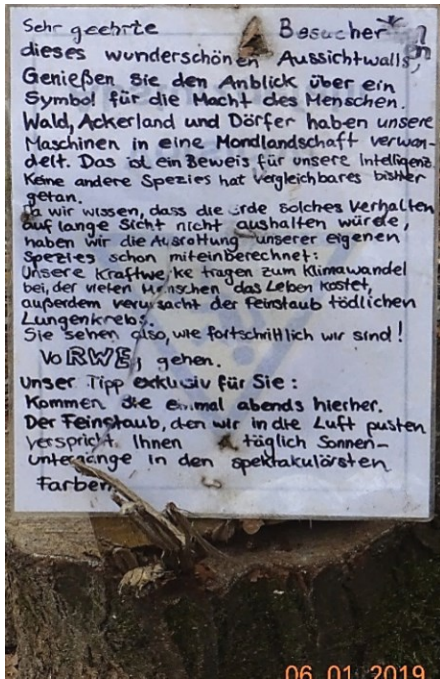 Sehr geehrte Besucher*innen
dieses wunderschönen Aussichtwalls,
Genießen Sie den Anblick über ein
Symbol für die Macht des Menschen.
Wald, Ackerland und Dörfer haben unsere
Maschinen in eine Mondlandschaft verwan-
delt. Das ist ein Beweis für unsere Intelligenz.
Keine andere Spezies hat vergleichbares bisher
getan.
Da wir wissen, dass die Erde solches Verhalten
auf lange Sicht nicht aushalten würde,
haben wir die Ausrottung unserer eigenen
Spezies schon miteinberechnet:
Unsere Kraftwerke tragen zum Klimawandel
bei, der vielen Menschen das Leben kostet,
außerdem verursacht der Feinstaub tödlichen
Lungenkrebs.
Sie sehen also, wie fortschrittlich wir sind!
VoRWEg gehen.
Unser Tipp exklusiv für Sie:
Kommen Sie einmal abends hierher.
Der Feinstaub, den wir in die Luft pusten
verspricht Ihnen täglich Sonnen-
untergänge in den spektakulärsten
Farben
06 01 2019